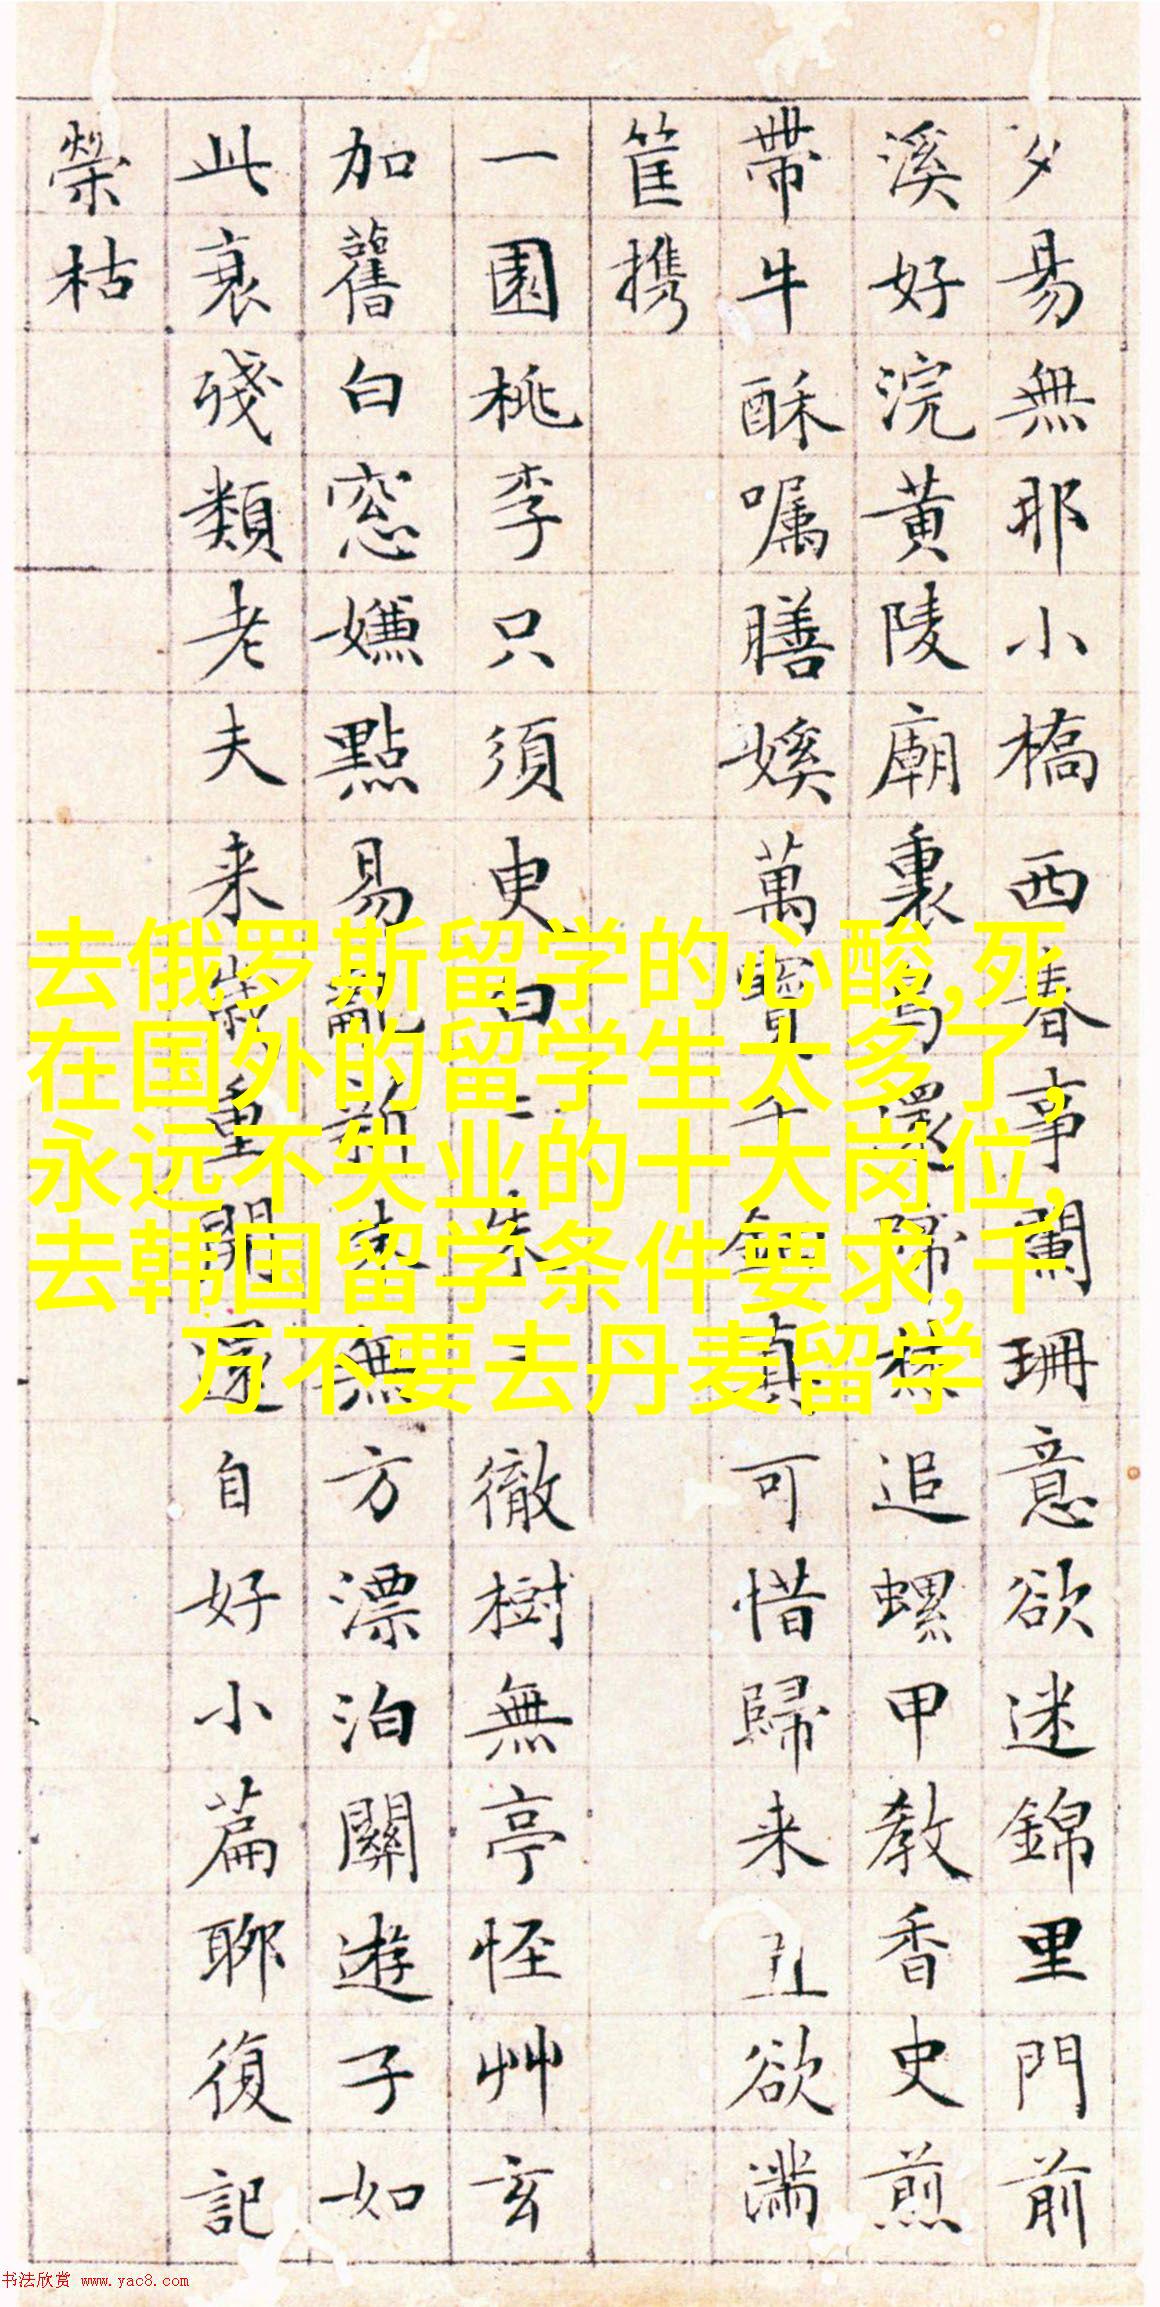 夕易無耶小橋西春事闌珊意欲迷錦里門前
溪好浣黃陵廟裏鳥還啼棲追螺甲教香史煎
帶牛酥嘱膳媟萬寶千鈿真可惜歸来丑欲滿
筐携
一園桃李只須臾白朱徹樹無亭怪艸玄
加舊白窓嫌點易亂新朱無方漂泊關遊子如
此衰殘類老夫来歲重開還自好小篇聊復記
榮枯
去俄罗斯留学的心酸,死
在国外的留学生太多了,
永远不失业的十大岗位,
去韩国留学条件要求,千
万不要去丹麦留学
书法欣赏 www.yac8.com